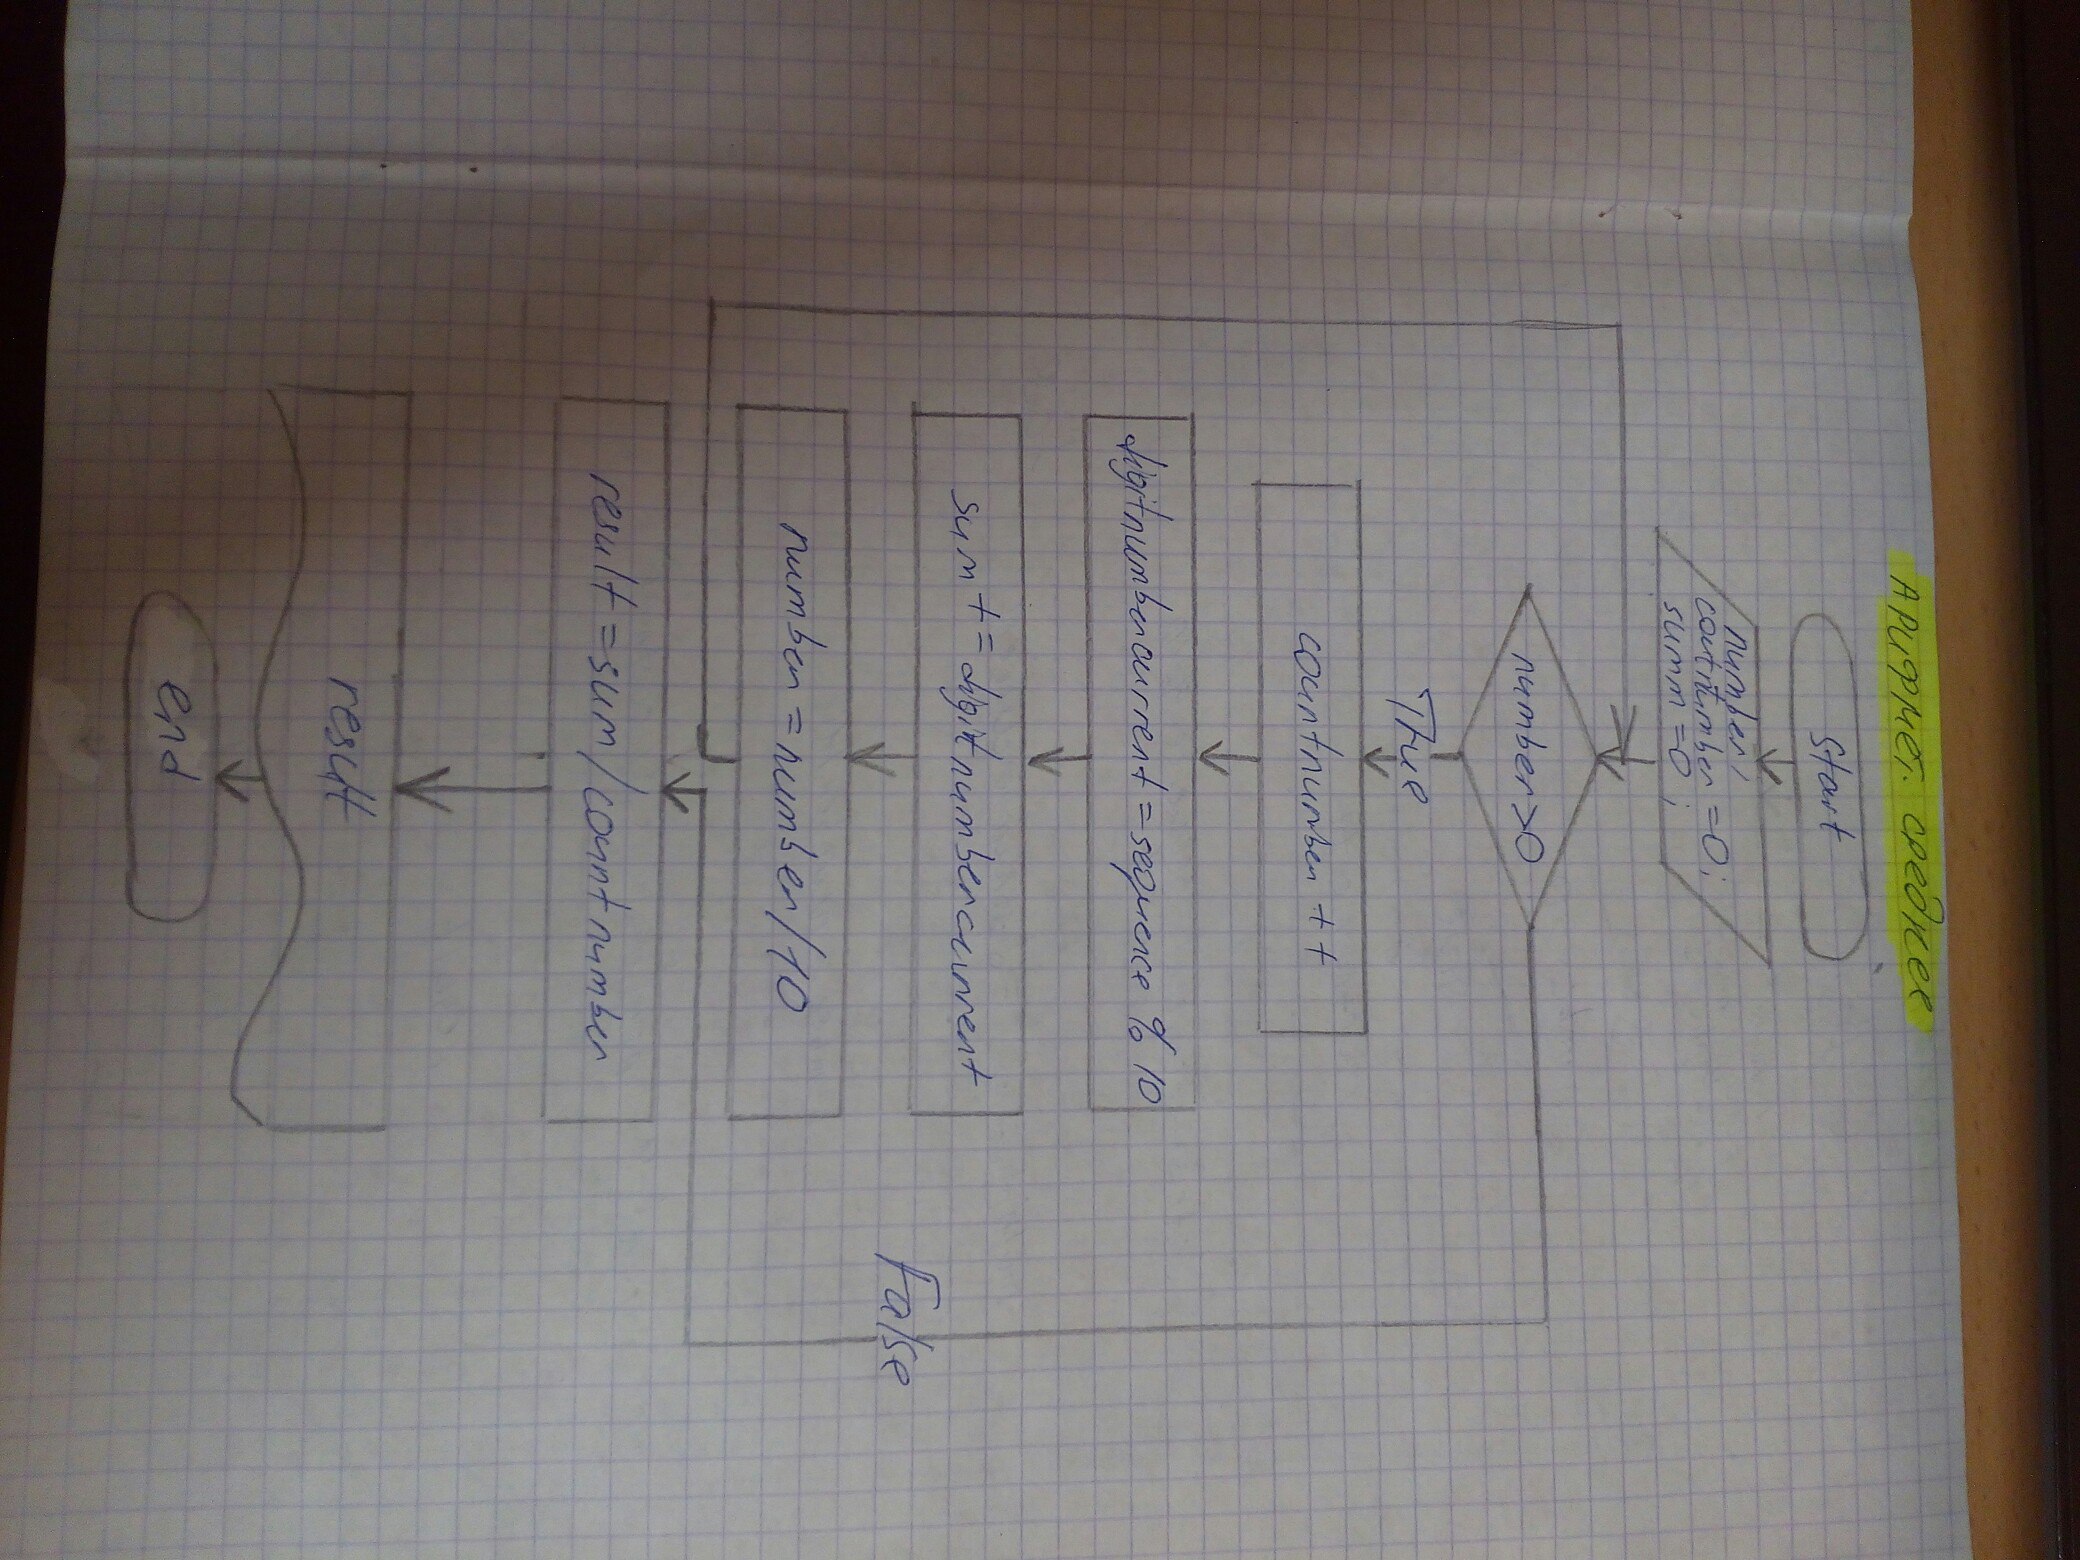 Арифмет. среднее
start
number;
coutnumber =0;
summ =0 ;
number>0
True
countnumber ++
digitnumbercurrent = sequence % 10
sum += digitnumbercurrent
False
number = number/10
result = sum / countnumber
result
end